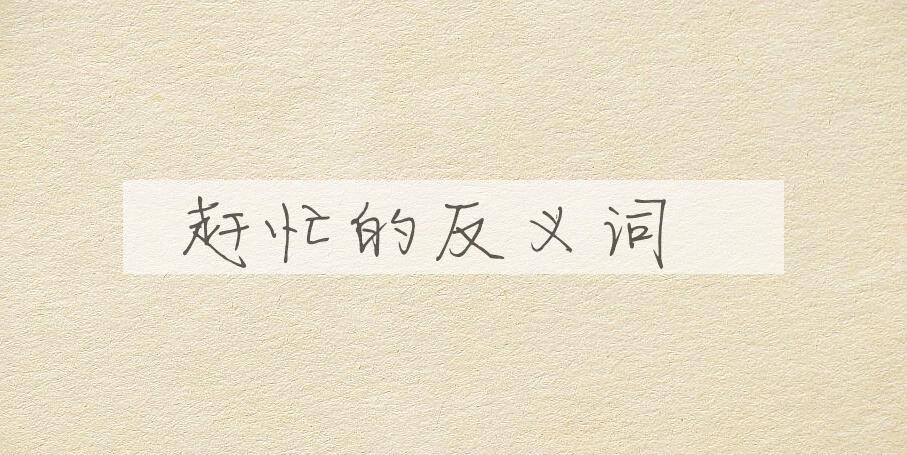 赶忙的反义词